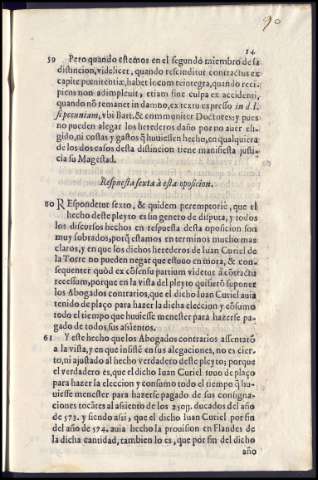 90
14
59 Pero quando estemos en el segundo miembro de la
distincion, videlicet, quando rescinditur contractus ex
capite pœnitentiæ, habet locum teintegra, quando reci-
piens non adimplevit, etiam sine culpa ex accidenti,
quando nõ remanet in damno, ex textu expresso in d. l.
si pecuniam, vbi Bart. & communiter Doctores: y pues
no pueden alegar los herederos daño por no auer ele-
gido, ni costas y gastos q̃ huuiessen hecho, en qualquiera
de los dos casos desta distincion tiene manifiesta justi-
cia su Magestad.
Respuesta sexta à esta oposicion.
60 REspondetur sexto, & quidem peremptoriè, que el
hecho deste pleyto es sin genero de disputa, y todos
los discursos hechos en respuesta desta oposicion son
muy sobrados, porq̃ estamos en terminos mucho mas
claros, y en que los dichos herederos de Iuan Curiel de
la Torre no pueden negar que estuuo en mora, & con-
sequenter quòd ex cõsensu partium videtur à cõtractu
recessum, porque en la vista del pleyto quisierõ suponer
los Abogados contrarios, que el dicho Iuan Curiel auia
tenido de plaço para hazer la dicha eleccion y cõsumo
todo el tiempo que huuiesse menester para hazerse pa-
gado de todos sus assientos.
61 Y este hecho que los Abogados contrarios assentarõ
a la vista, y en que insistẽ en sus alegaciones, no es cier-
to, ni ajustado al hecho verdadero deste pleyto; porque
el verdadero es, que el dicho Iuan Curiel tuuo de plaço
para hazer la eleccion y consumo todo el tiempo q̃ hu-
uiesse menester para hazerse pagado de sus consigna-
ciones tocãtes al assiento de los ducados del año
de 573. y siendo assi, que el dicho Iuan Curiel por fin
del año de 574. auia hecho la prouision en Flandes de
la dicha cantidad, tambien lo es, que por fin del dicho
año